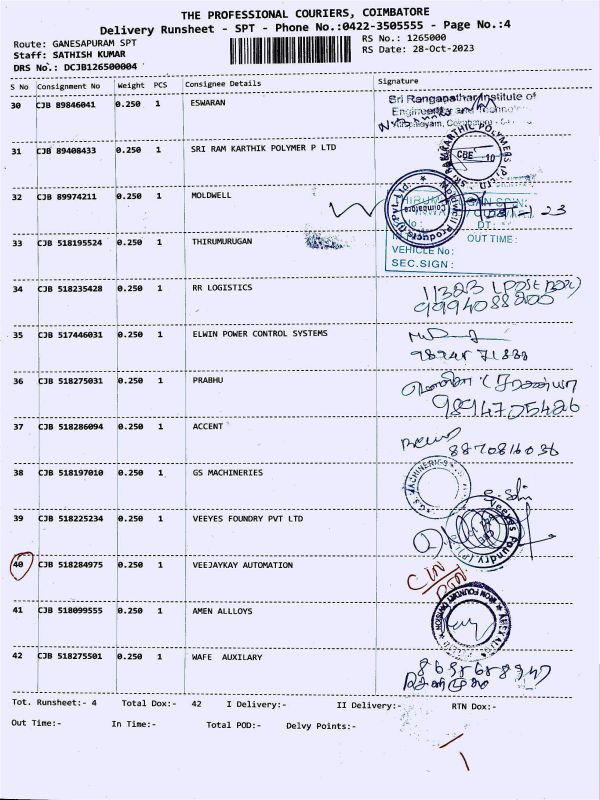 THE PROFESSIONAL COURIERS, COIMBATORE
Delivery Runsheet - SPT - Phone No.:0422-3505555 - Page No.:4
Route: GANESAPURAM SPT
RS No.: 1265000
Staff: SATHISH KUMAR
RS Date: 28-Oct-2023
DRS No.: DCJB126500004
S No Consignment No Weight PCS Consignee Details Signature
30 CJB 89846041 0.250 1 ESWARAN
Sri Ranganathar Institute of
Engineering and
31 CJB 89408433 0.250 1 SRI RAM KARTHIK POLYMER P LTD
CBE 10
32 CJB 89974211 0.250 1 MOLDWELL
Moldwell Products
Coimbatore
33 CJB 518195524 0.250 1 THIRUMURUGAN
OUT TIME:
VEHICLE No:
SEC.SIGN:
34 CJB 518235428 0.250 1 RR LOGISTICS
9994088200
35 CJB 517446031 0.250 1 ELWIN POWER CONTROL SYSTEMS
36 CJB 518275031 0.250 1 PRABHU
9894705426
37 CJB 518286094 0.250 1 ACCENT
8870816036
38 CJB 518197010 0.250 1 GS MACHINERIES
G.S. MACHINERIES
39 CJB 518225234 0.250 1 VEEYES FOUNDRY PVT LTD
Veeyes Foundry
40 CJB 518284975 0.250 1 VEEJAYKAY AUTOMATION
41 CJB 518099555 0.250 1 AMEN ALLLOYS
IRON FOUNDRY DIVISION
42 CJB 518275501 0.250 1 WAFE AUXILARY
Tot. Runsheet:- 4 Total Dox:- 42 I Delivery:- II Delivery:- RTN Dox:-
Out Time:- In Time:- Total POD:- Delvy Points:-